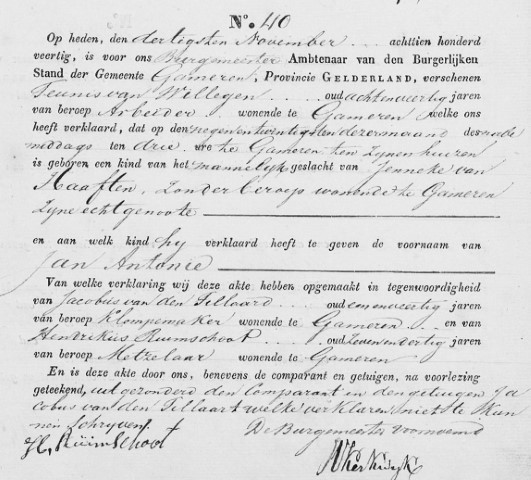 N.º 40
Op heden, den dertigsten November achttien honderd
veertig, is voor ons Burgemeester Ambtenaar van den Burgerlijken
Stand der Gemeente Gameren, Provincie GELDERLAND, verschenen
Teunis van Willegen oud achtenveertig jaren
van beroep Arbeider wonende te Gameren welke ons
heeft verklaard, dat op den negenentwintigsten dezer maand des
middags ten drie ure te Gameren ten zynen huizen
is geboren een kind van het mannelyk geslacht van Jenneke van
Haaften, zonder beroep wonende te Gameren
zyne echtgenoote
en aan welk kind hy verklaard heeft te geven de voornaam van
Jan Antonie
Van welke verklaring wij deze akte hebben opgemaakt in tegenwoordigheid
van Jacobus van den Sillaard oud eenenveertig jaren
van beroep Klompemaker wonende te Gameren en van
Hendrikus Ruimschoot oud zevenendertig jaren
van beroep Metzelaar wonende te Gameren
En is deze akte door ons, benevens de comparant en getuigen, na voorlezing
geteekend, uitgezonderd den Comparant en den getuigen Ja
cobus van den Sillaart welke verklaren niet te kun
nen schryven.
De Burgemeester voornoemd
H. Ruimschoot